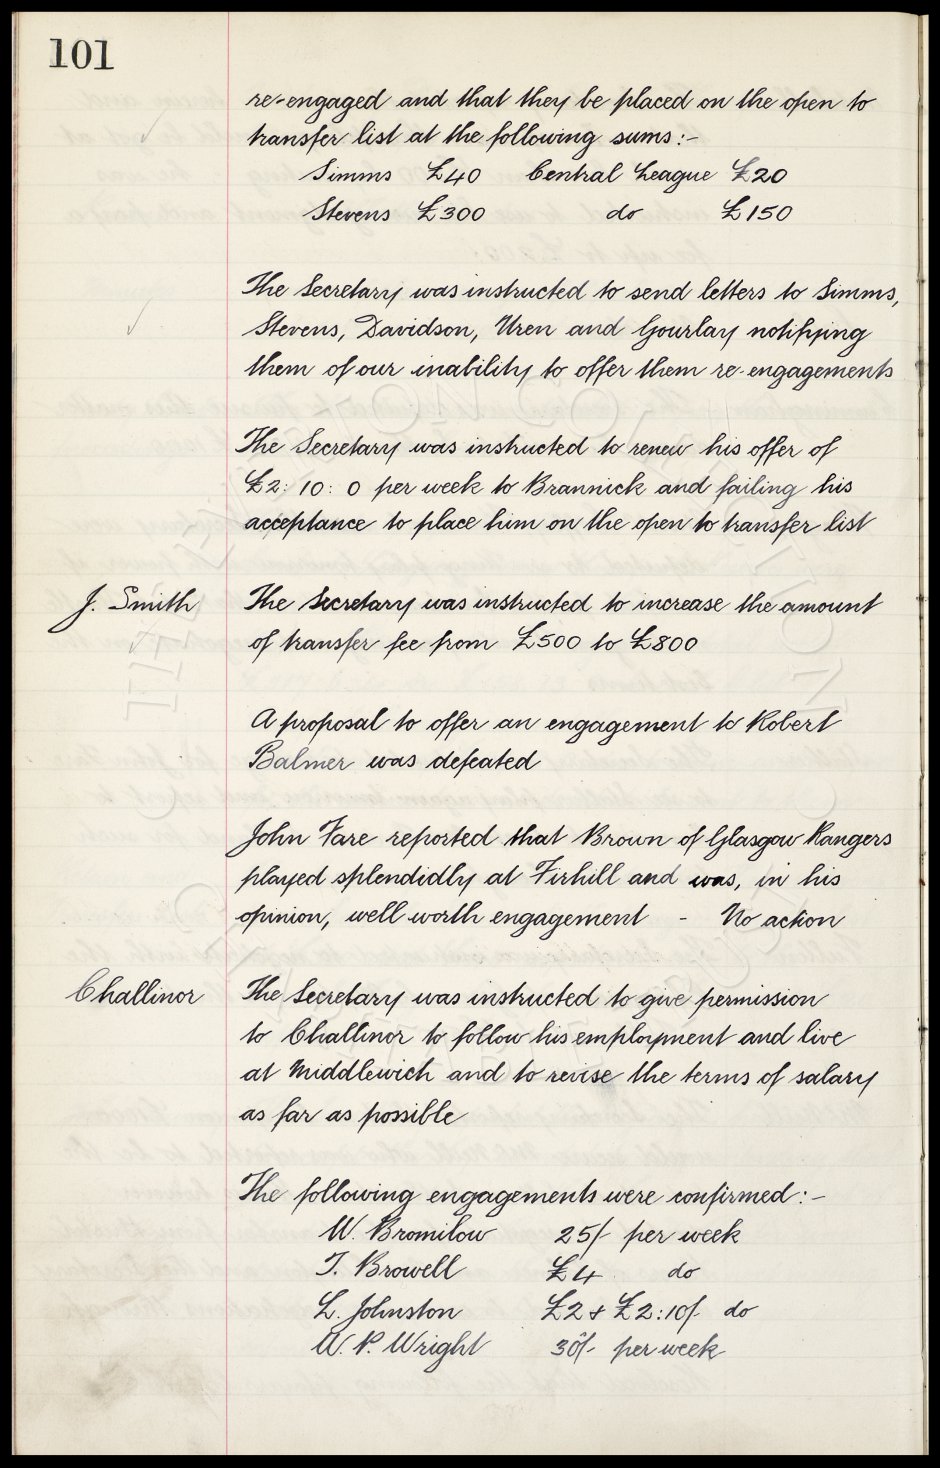 101
re-engaged and that they be placed on the open to
transfer list at the following sums:-
Simms £40 Central League £20
Stevens £300 do £150
The Secretary was instructed to send letters to Simms,
Stevens, Davidson, Uren and Gourlay notifying
them of our inability to offer them re-engagements
The Secretary was instructed to renew his offer of
£2: 10: 0 per week to Brannick and failing his
acceptance to place him on the open to transfer list
J. Smith The Secretary was instructed to increase the amount
of transfer fee from £500 to £800
A proposal to offer an engagement to Robert
Balmer was defeated
John Fare reported that Brown of Glasgow Rangers
played splendidly at Firhill and was, in his
opinion, well worth engagement - No action
Challinor The Secretary was instructed to give permission
to Challinor to follow his employment and live
at Middlewich and to revise the terms of salary
as far as possible
The following engagements were confirmed:-
W. Bromilow 25/- per week
T. Browell £4 do
L. Johnston £2 & £2:10/- do
W. P. Wright 30/- per week